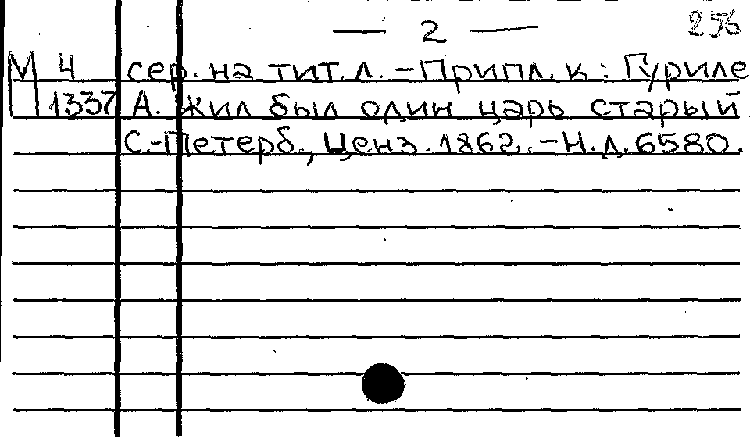 — 2 — 256
М 4 сер. на тит. л. – Припл. к : Гуриле
1337 А. Жил был один царь старый
С.-Петерб., Ценз. 1862. – Н.д. 6580.